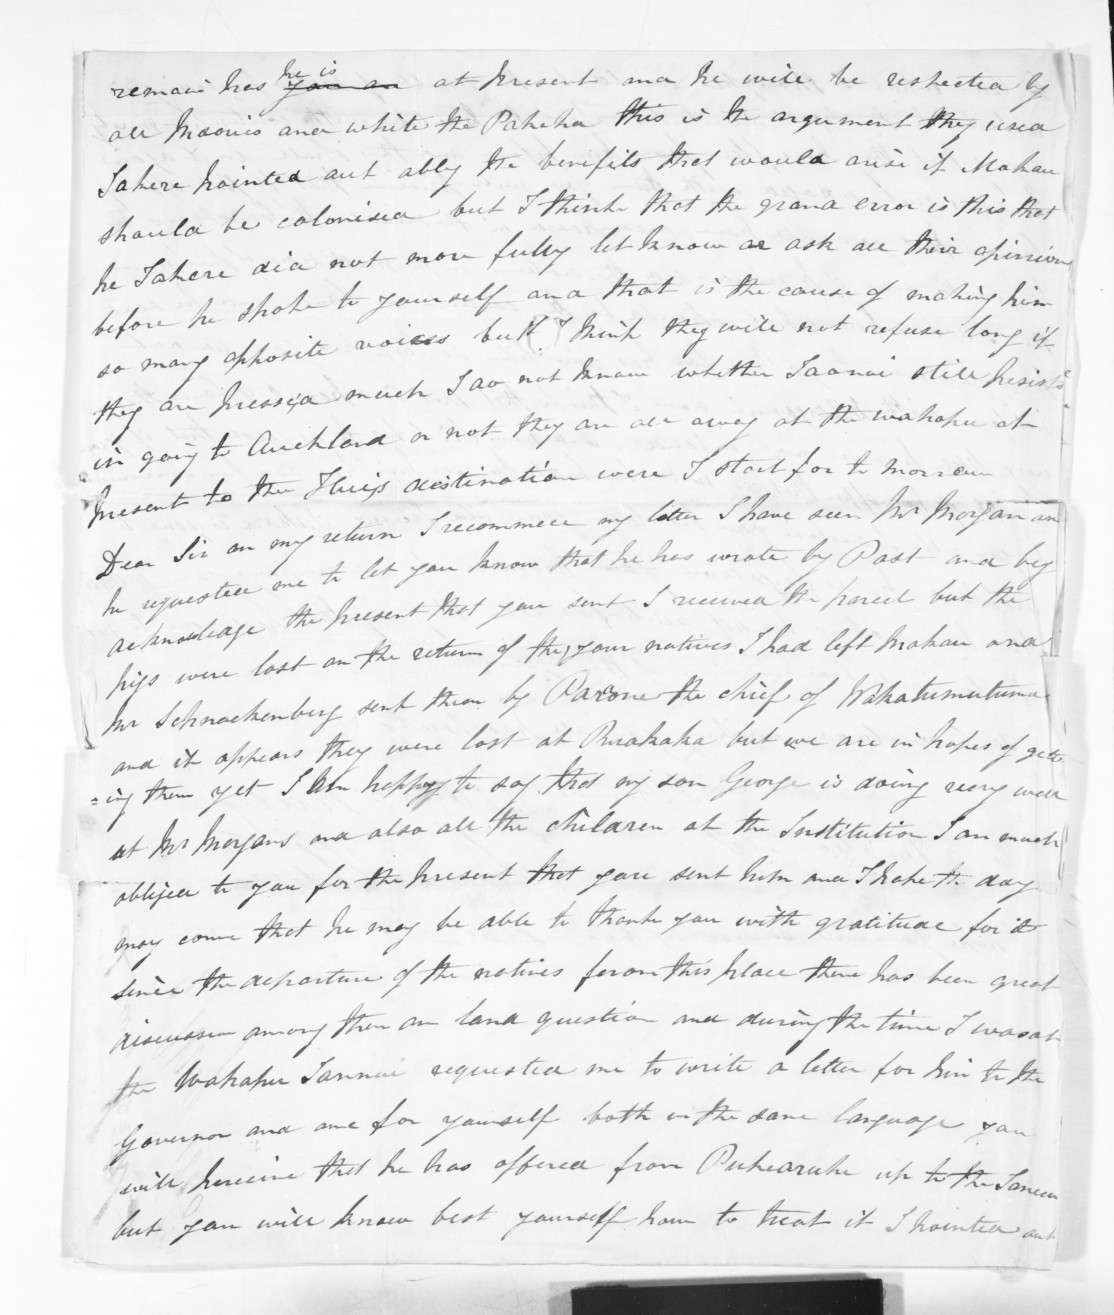 remain has he is you are at present and he will be respected by
all Maories and white the Pakeha this is the argument they used
Takere pointed out ably the benefits that would arise if Mokau
should be colonised but I think that the grand error is this that
he Takere did not more fully let know or ask all their opinion
before he spoke to yourself and that is the cause of making him
so many opposite voices but I think they will not refuse long if
they are pressed much I do not know whether Taonui still persists
in going to Auckland or not they are all away at the wahapu at
present to the destination were I start for to morrow
Dear Sir on my return I recommece my letter I have seen Mr Morgan an
he requested me to let you know that he has wrote by Post and beg
acknowledge the present that you sent I received the parcel but the
pigs were lost on the return of the your natives I had left Mokau and
Mr Schnackenberg sent them by Parone the chief of Wakatumutumu
and it appears they were lost at Purakaka but we are in hopes of gett
=ing them yet I am happy to say that my son George is doing very well
at Mr Morgans and also all the children at the Institution I am much
obliged to you for the present that you sent him and I hope the day
may come that he may be able to thank you with gratitude for it
since the departure of the natives from this place there has been great
discussion among them on land question and during the time I was at
the Wahapu Taonui requested me to write a letter for him to the
Governor and one for yourself both in the same language you
will perceive that he has offered from Pukearuhe up to the
but you will know best yourself how to treat it I pointed out